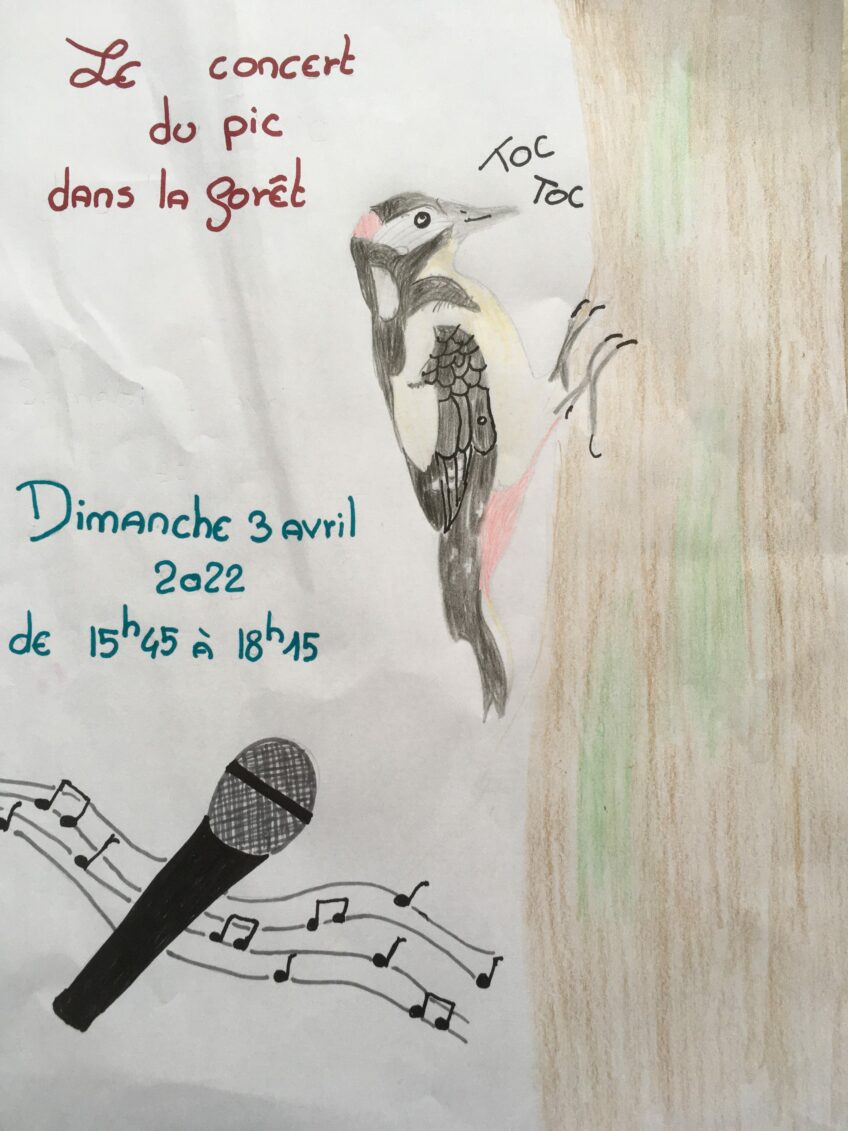 Le concert
du pic
dans la forêt
TOC
TOC
Dimanche 3 avril
2022
de 15h45 à 18h15